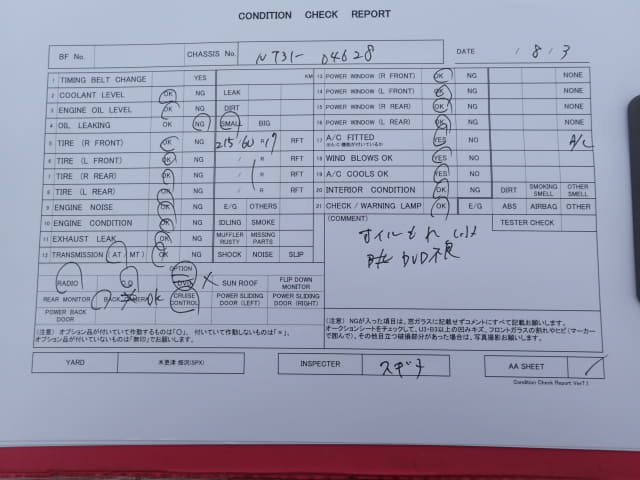 CONDITION CHECK REPORT
BF No. CHASSIS No. NT31- 04628 DATE / 8 / 3
1 TIMING BELT CHANGE YES KM
2 COOLANT LEVEL OK NG LEAK
3 ENGINE OIL LEVEL OK NG DIRT
4 OIL LEAKING OK NG SMALL BIG
5 TIRE (R FRONT) OK NG 215/60 R17 RFT
6 TIRE (L FRONT) OK NG / R RFT
7 TIRE (R REAR) OK NG / R RFT
8 TIRE (L REAR) OK NG / R RFT
9 ENGINE NOISE OK NG E/G OTHERS
10 ENGINE CONDITION OK NG IDLING SMOKE
11 EXHAUST LEAK OK NG MUFFLER RUSTY MISSING PARTS
12 TRANSMISSION (AT/MT) OK NG SHOCK NOISE SLIP
OPTION
RADIO CD DVD × SUN ROOF FLIP DOWN MONITOR
REAR MONITOR BACK CAMERA OK CRUISE CONTROL POWER SLIDING DOOR (LEFT) POWER SLIDING DOOR (RIGHT)
POWER BACK DOOR
(注意) オプション品が付いていて作動するものは「○」、付いていて作動しないものは「×」、
オプション品が付いていないものは「無印」でお願いします。
13 POWER WINDOW (R FRONT) OK NG NONE
14 POWER WINDOW (L FRONT) OK NG NONE
15 POWER WINDOW (R REAR) OK NG NONE
16 POWER WINDOW (L REAR) OK NG NONE
17 A/C FITTED YES NO A/C
18 WIND BLOWS OK YES NO
19 A/C COOLS OK YES NO
20 INTERIOR CONDITION OK NG DIRT SMOKING SMELL OTHER SMELL
21 CHECK / WARNING LAMP OK E/G ABS AIRBAG OTHER
(COMMENT) TESTER CHECK
オイルもれ
DVD不良
(注意) NGが入った項目は、窓ガラスに記載せずコメントにすべて記載お願いします。
オークションシートをチェックして、U3・B3以上の凹みキズ、フロントガラスの割れやヒビ(マーカー
で囲んで)、その他目立つ破損部分があった場合は、写真撮影お願いします。
YARD 木更津 (SPX) INSPECTER スギナ AA SHEET
Condition Check Report Ver7.1